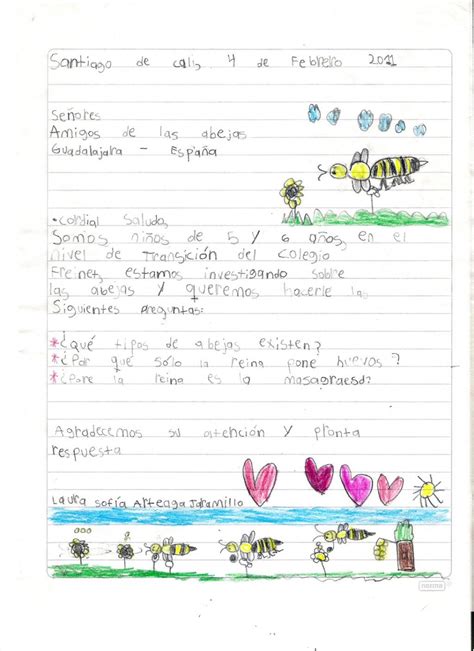 Santiago de cali, 4 de Febrero 2011
Señores
Amigos de las abejas
Guadalajara - España
•cordial saludo,
Somos niños de 5 y 6 años, en el
nivel de Transición del colegio
Freinet, estamos investigando sobre
las abejas y queremos hacerle las
Siguientes preguntas:
*¿Qué tipos de abejas existen?
*¿Por qué sólo la reina pone huevos?
*¿Pore la reina es la masagraesd?
Agradecemos su atención y pronta
respuesta
Laura sofía Arteaga Jaramillo
norma